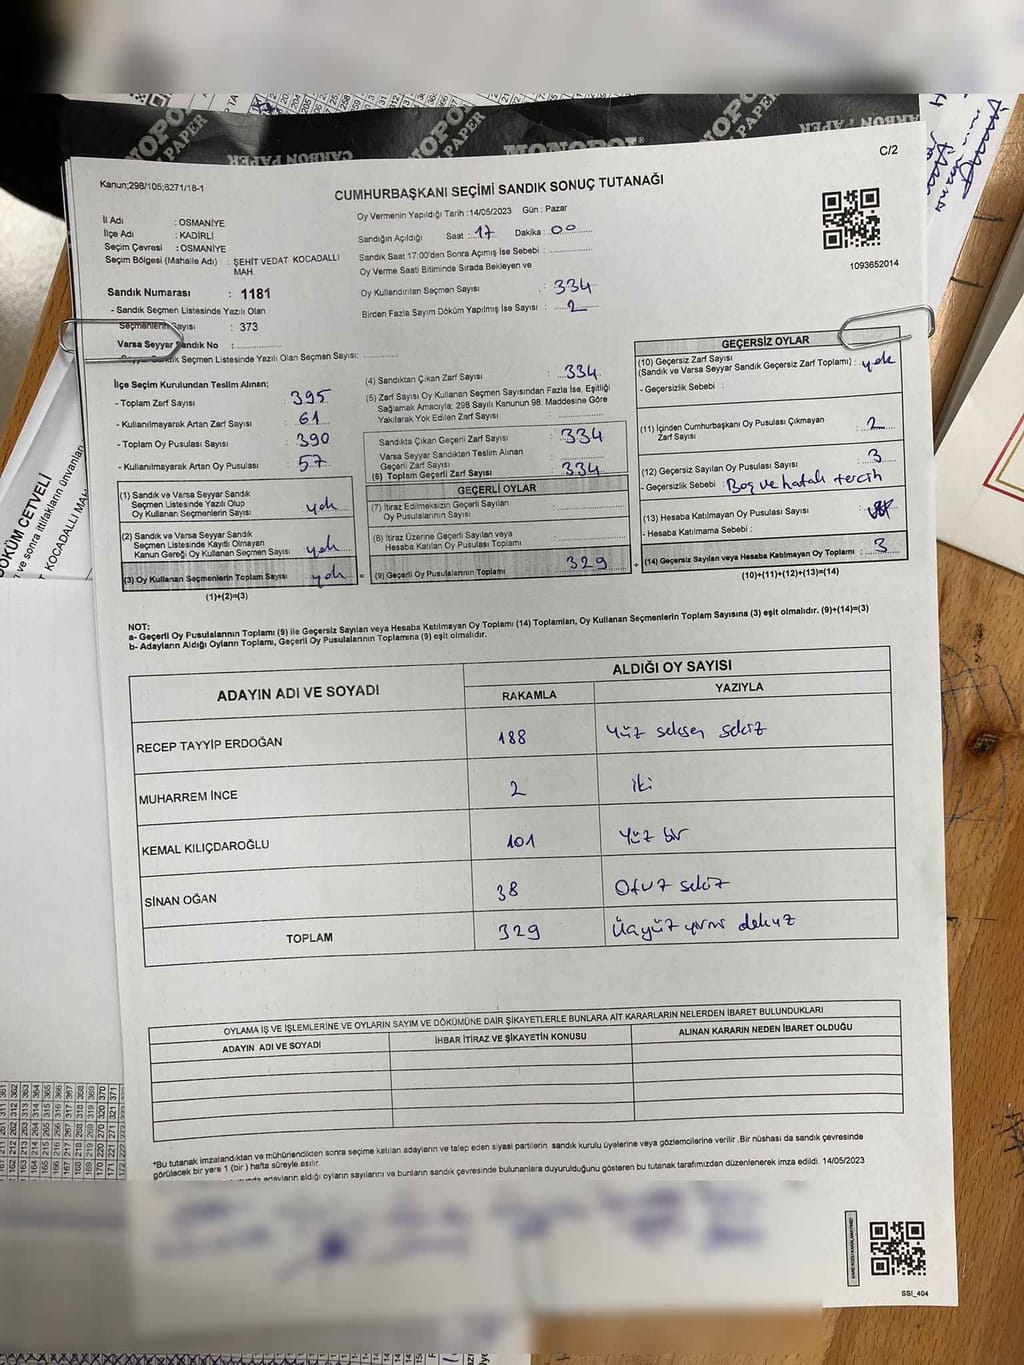 MONOPOL
CARBON PAPER
C/2
Kanun;298/105;6271/18-1
CUMHURBAŞKANI SEÇİMİ SANDIK SONUÇ TUTANAĞI
İl Adı : OSMANİYE
İlçe Adı : KADİRLİ
Seçim Çevresi : OSMANİYE
Seçim Bölgesi (Mahalle Adı) : ŞEHİT VEDAT KOCADALLI
MAH.
Sandık Numarası : 1181
- Sandık Seçmen Listesinde Yazılı Olan
Seçmenlerin Sayısı : 373
Varsa Seyyar Sandık No :
Seyyar Sandık Seçmen Listesinde Yazılı Olan Seçmen Sayısı:
Oy Vermenin Yapıldığı Tarih :14/05/2023 Gün : Pazar
Sandığın Açıldığı Saat : 17 Dakika : 00
Sandık Saat 17:00'den Sonra Açımış İse Sebebi :
Oy Verme Saati Bitiminde Sırada Bekleyen ve
Oy Kullandırılan Seçmen Sayısı : 334
Birden Fazla Sayım Döküm Yapılmış İse Sayısı : 2
1093652014
İlçe Seçim Kurulundan Teslim Alınan;
- Toplam Zarf Sayısı : 395
- Kullanılmayarak Artan Zarf Sayısı : 61
- Toplam Oy Pusulası Sayısı : 390
- Kullanılmayarak Artan Oy Pusulası : 57
(1) Sandık ve Varsa Seyyar Sandık
Seçmen Listesinde Yazılı Olup
Oy Kullanan Seçmenlerin Sayısı : yok
(2) Sandık ve Varsa Seyyar Sandık
Seçmen Listesinde Kayıtlı Olmayan
Kanun Gereği Oy Kullanan Seçmen Sayısı : yok
(3) Oy Kullanan Seçmenlerin Toplam Sayısı : yok
(1)+(2)=(3)
(4) Sandıktan Çıkan Zarf Sayısı : 334
(5) Zarf Sayısı Oy Kullanan Seçmen Sayısından Fazla İse, Eşitliği
Sağlamak Amacıyla; 298 Sayılı Kanunun 98. Maddesine Göre
Yakılarak Yok Edilen Zarf Sayısı :
Sandıkta Çıkan Geçerli Zarf Sayısı : 334
Varsa Seyyar Sandıktan Teslim Alınan
Geçerli Zarf Sayısı :
(6) Toplam Geçerli Zarf Sayısı : 334
GEÇERLİ OYLAR
(7) İtiraz Edilmeksizin Geçerli Sayılan
Oy Pusulalarının Sayısı :
(8) İtiraz Üzerine Geçerli Sayılan veya
Hesaba Katılan Oy Pusulası Toplamı :
= (9) Geçerli Oy Pusulalarının Toplamı : 329
GEÇERSİZ OYLAR
(10) Geçersiz Zarf Sayısı
(Sandık ve Varsa Seyyar Sandık Geçersiz Zarf Toplamı) : yok
- Geçersizlik Sebebi :
(11) İçinden Cumhurbaşkanı Oy Pusulası Çıkmayan
Zarf Sayısı : 2
(12) Geçersiz Sayılan Oy Pusulası Sayısı : 3
- Geçersizlik Sebebi : Boş ve hatalı tercih
(13) Hesaba Katılmayan Oy Pusulası Sayısı :
- Hesaba Katılmama Sebebi :
+ (14) Geçersiz Sayılan veya Hesaba Katılmayan Oy Toplamı : 3
(10)+(11)+(12)+(13)=(14)
NOT:
a- Geçerli Oy Pusulalarının Toplamı (9) ile Geçersiz Sayılan veya Hesaba Katılmayan Oy Toplamı (14) Toplamları, Oy Kullanan Seçmenlerin Toplam Sayısına (3) eşit olmalıdır. (9)+(14)=(3)
b- Adayların Aldığı Oyların Toplamı, Geçerli Oy Pusulalarının Toplamına (9) eşit olmalıdır.
ADAYIN ADI VE SOYADI
ALDIĞI OY SAYISI
RAKAMLA YAZIYLA
RECEP TAYYİP ERDOĞAN 188 Yüz seksen sekiz
MUHARREM İNCE 2 iki
KEMAL KILIÇDAROĞLU 101 Yüz bir
SİNAN OĞAN 38 Otuz sekiz
TOPLAM 329 Üçyüz yirmi dokuz
OYLAMA İŞ VE İŞLEMLERİNE VE OYLARIN SAYIM VE DÖKÜMÜNE DAİR ŞİKAYETLERLE BUNLARA AİT KARARLARIN NELERDEN İBARET BULUNDUKLARI
ADAYIN ADI VE SOYADI İHBAR İTİRAZ VE ŞİKAYETİN KONUSU ALINAN KARARIN NEDEN İBARET OLDUĞU
*Bu tutanak imzalandıktan ve mühürlendikten sonra seçime katılan adayların ve talep eden siyasi partilerin sandık kurulu üyelerine veya gözlemcilerine verilir .Bir nüshası da sandık çevresinde
görülecek bir yere 1 (bir) hafta süreyle asılır.
adayların aldığı oyların sayılarını ve bunların sandık çevresinde bulunanlara duyurulduğunu gösteren bu tutanak tarafımızdan düzenlenerek imza edildi. 14/05/2023
SSI_404
DÖKÜM CETVELİ
KOCADALLI MAH